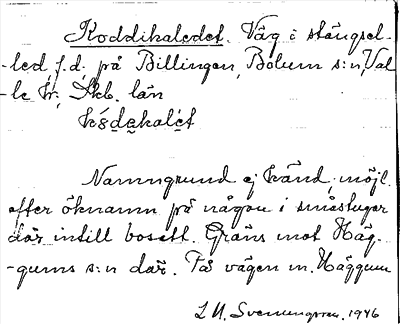 Koddikaledet. Väg i stängsel-
-led, f.d. på Billingen, Bolum s:n, Val-
-le hr, Skb. län
Namngrund ej känd, möjl.
efter öknamn på någon i småstugor
där intill bosatt. Gräns mot Häg-
-gums s:n där. Få vägen m. Häggum
L M. Svenungsson. 1946